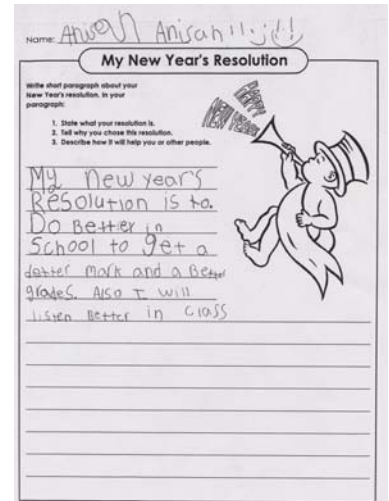 Name: Anisah Anisah!! :) !!
My New Year's Resolution
Write short paragraph about your
New Year's resolution. In your
paragraph:
1. State what your resolution is.
2. Tell why you chose this resolution.
3. Describe how it will help you or other people.
HAPPY
NEW YEAR!
My new year's
Resolution is to.
Do Better in
School to get a
better mark and a Better
grades. Also I will
listen Better in Class